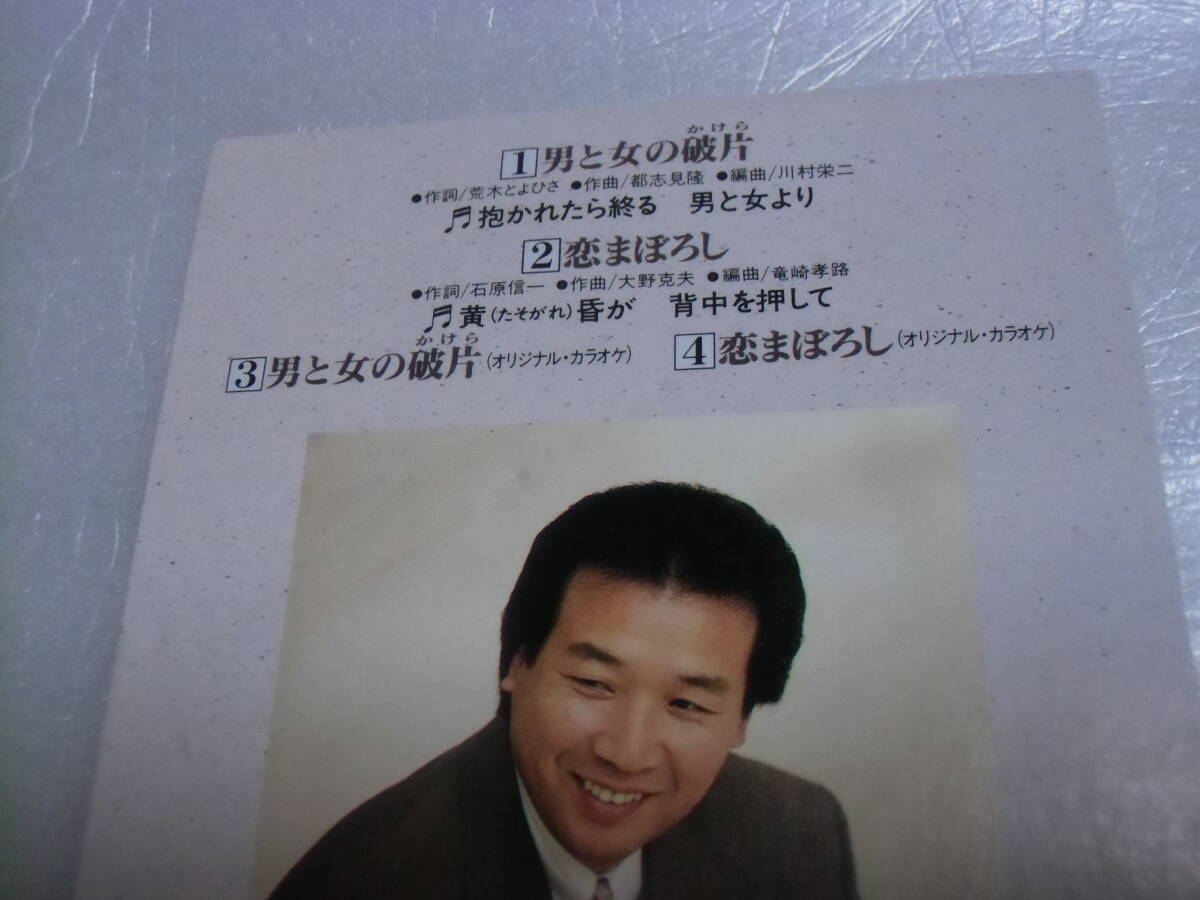 かけら
1 男と女の破片
●作詞/荒木とよひさ ●作曲/都志見隆 ●編曲/川村栄二
♬抱かれたら終る 男と女より
2 恋まぼろし
●作詞/石原信一 ●作曲/大野克夫 ●編曲/竜崎孝路
♬黄(たそがれ)昏が 背中を押して
かけら
3 男と女の破片(オリジナル・カラオケ) 4 恋まぼろし(オリジナル・カラオケ)